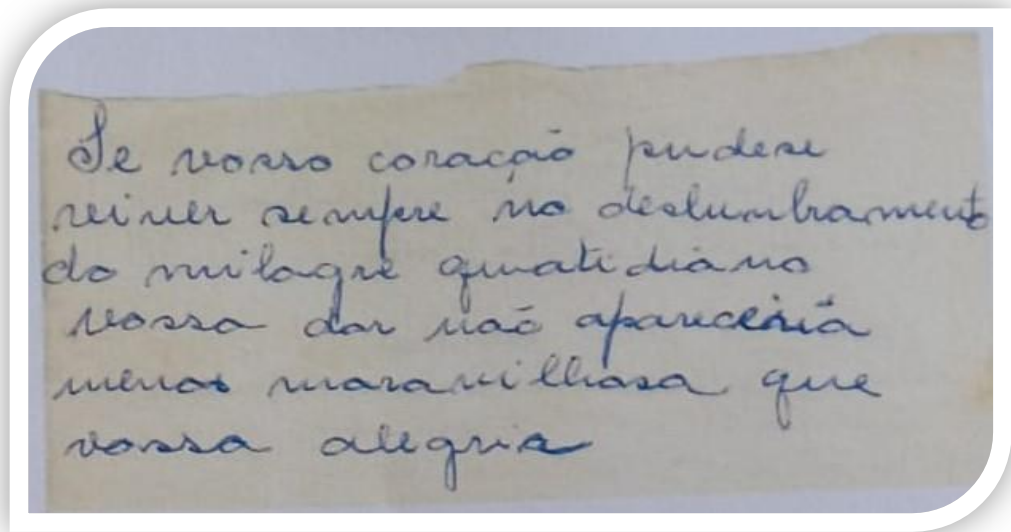 Se vosso coração pudese
viver sempre no deslumbramento
do milagre quatidiano
vossa dor não apareceria
menos maravilhosa que
vossa alegria